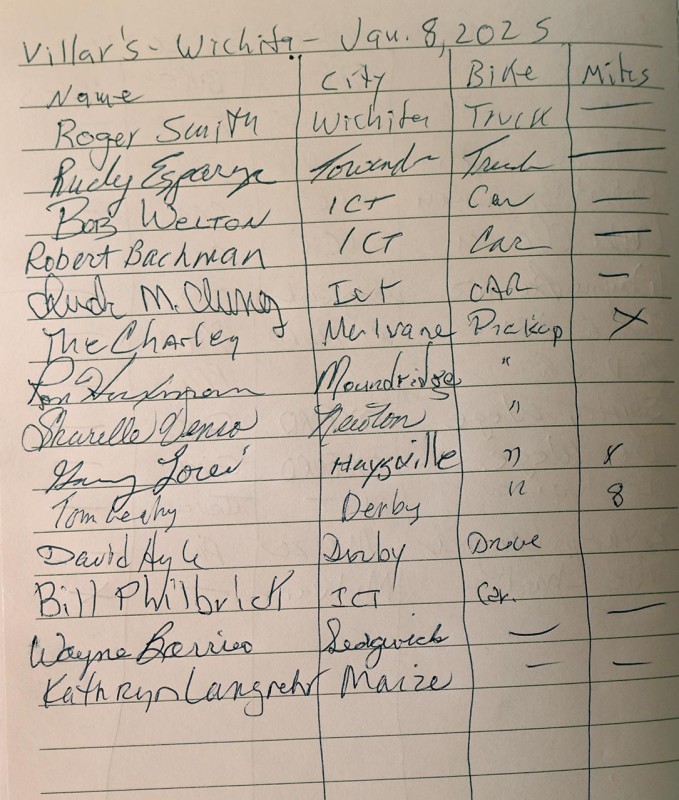 Villar's - Wichita - Jan. 8, 2025
Name City Bike Miles
Roger Smith Wichita Truck —
Rudy Esparza Towanda Truck —
Bob Welton ICT Car —
Robert Bachman ICT Car —
McClung Ict CAR —
The Charley Mulvane Pickup X
Moundridge "
Sharelle Newton "
Gary Haysville " X
Tom Leahy Derby " 8
David Hyle Derby Drove
Bill Philbrick ICT Car.
Wayne Sedgwick — —
Kathryn Langrehr Maize — —